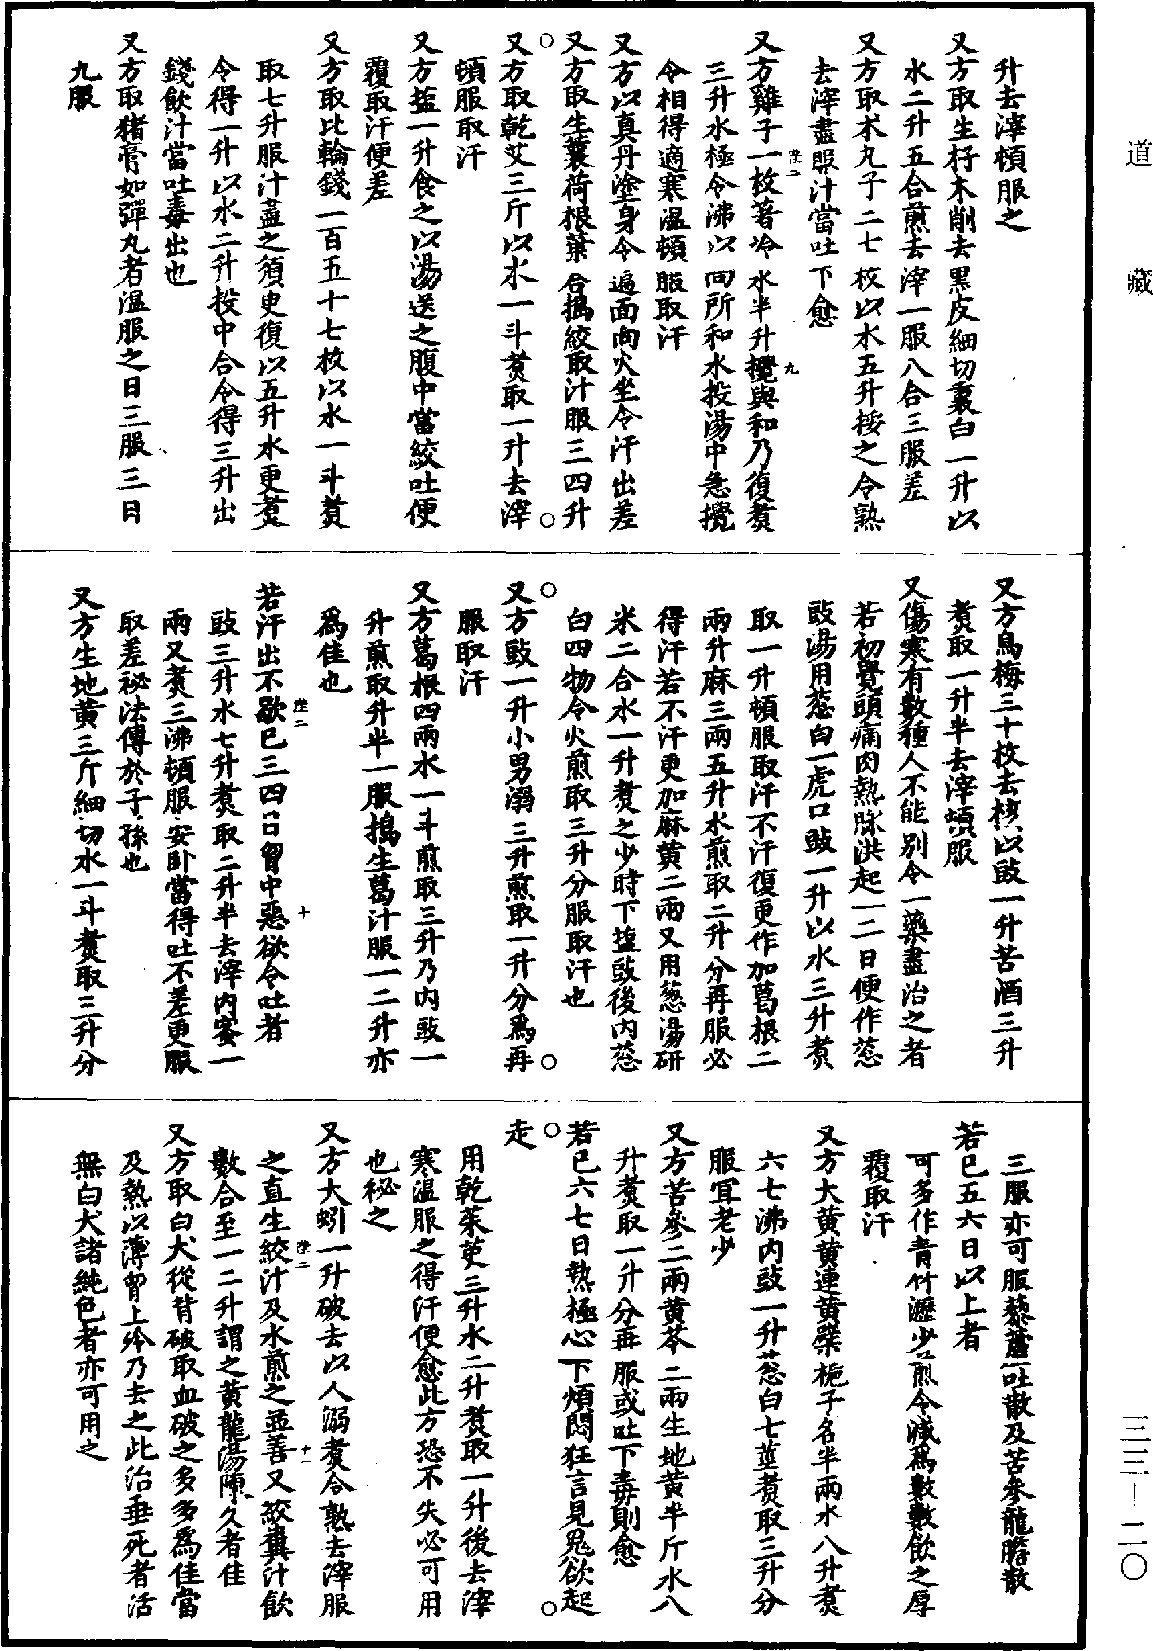 升去滓頓服之
又方取生梓木削去黑皮細切裏白一升以
水二升五合煎去滓一服八合三服差
又方取术丸子二七枚以水五升挼之令熟
去滓盡服汁當吐下愈
又方雞子一枚著冷水半升攪與和乃復煑
三升水極令沸以向所和水投湯中急攪
令相得適寒温頓服取汗
又方以真丹塗身令遍面向火坐令汗出差
又方取生蘘荷根葉合搗絞取汁服三四升
又方取乾艾三斤以水一斗煑取一升去滓
頓服取汗
又方塩一升食之以湯送之腹中當絞吐便
覆取汗便差
又方取比輪錢一百五十七枚以水一斗煑
取七升服汁盡之須更復以五升水更煑
令得一升以水二升投中合令得三升出
錢飲汁當吐毒出也
又方取猪膏如彈丸者温服之日三服三日
九服
又方烏梅三十枚去核以豉一升苦酒三升
煑取一升半去滓頓服
又傷寒有數種人不能別令一藥盡治之者
若初覺頭痛肉熱脉洪起一二日便作葱
豉湯用葱白一虎口豉一升以水三升煑
取一升頓服取汗不汗復更作加葛根二
兩升麻三兩五升水煎取二升分再服必
得汗若不汗更加麻黄二兩又用葱湯研
米二合水一升煑之少時下塩豉後内葱
白四物令火煎取三升分服取汗也
又方豉一升小男溺三升煎取一升分爲再
服取汗
又方葛根四兩水一斗煎取三升乃内豉一
升煎取升半一服搗生葛汁服一二升亦
爲佳也
若汗出不歇已三四日胷中惡欲令吐者
豉三升水七升煑取二升半去滓内蜜一
兩又煑三沸頓服安卧當得吐不差更服
取差祕法傳於子孫也
又方生地黄三斤細切水一斗煑取三升分
三服亦可服藜蘆吐散及苦參龍膽散
若已五六日以上者
可多作青竹瀝少煎令減爲數數飲之厚
覆取汗
又方大黄黄連黄蘗梔子各半兩水八升煑
六七沸内豉一升葱白七莖煑取三升分
服宜老少
又方苦參二兩黄芩二兩生地黄半斤水八
升煑取一升分再服或吐下毒則愈
若已六七日熱極心下煩悶狂言見鬼欲起
走
用乾茱萸三升水二升煑取一升後去滓
寒温服之得汗便愈此方恐不失必可用
也秘之
又方大蚓一升破去以人溺煑令熟去滓服
之直生絞汁及水煎之並善又絞糞汁飲
數合至一二升謂之黄龍湯陳久者佳
又方取白犬從背破取血破之多多爲佳當
及熱以薄胷上冷乃去之此治垂死者活
無白犬諸純色者亦可用之
道藏
三三-二〇